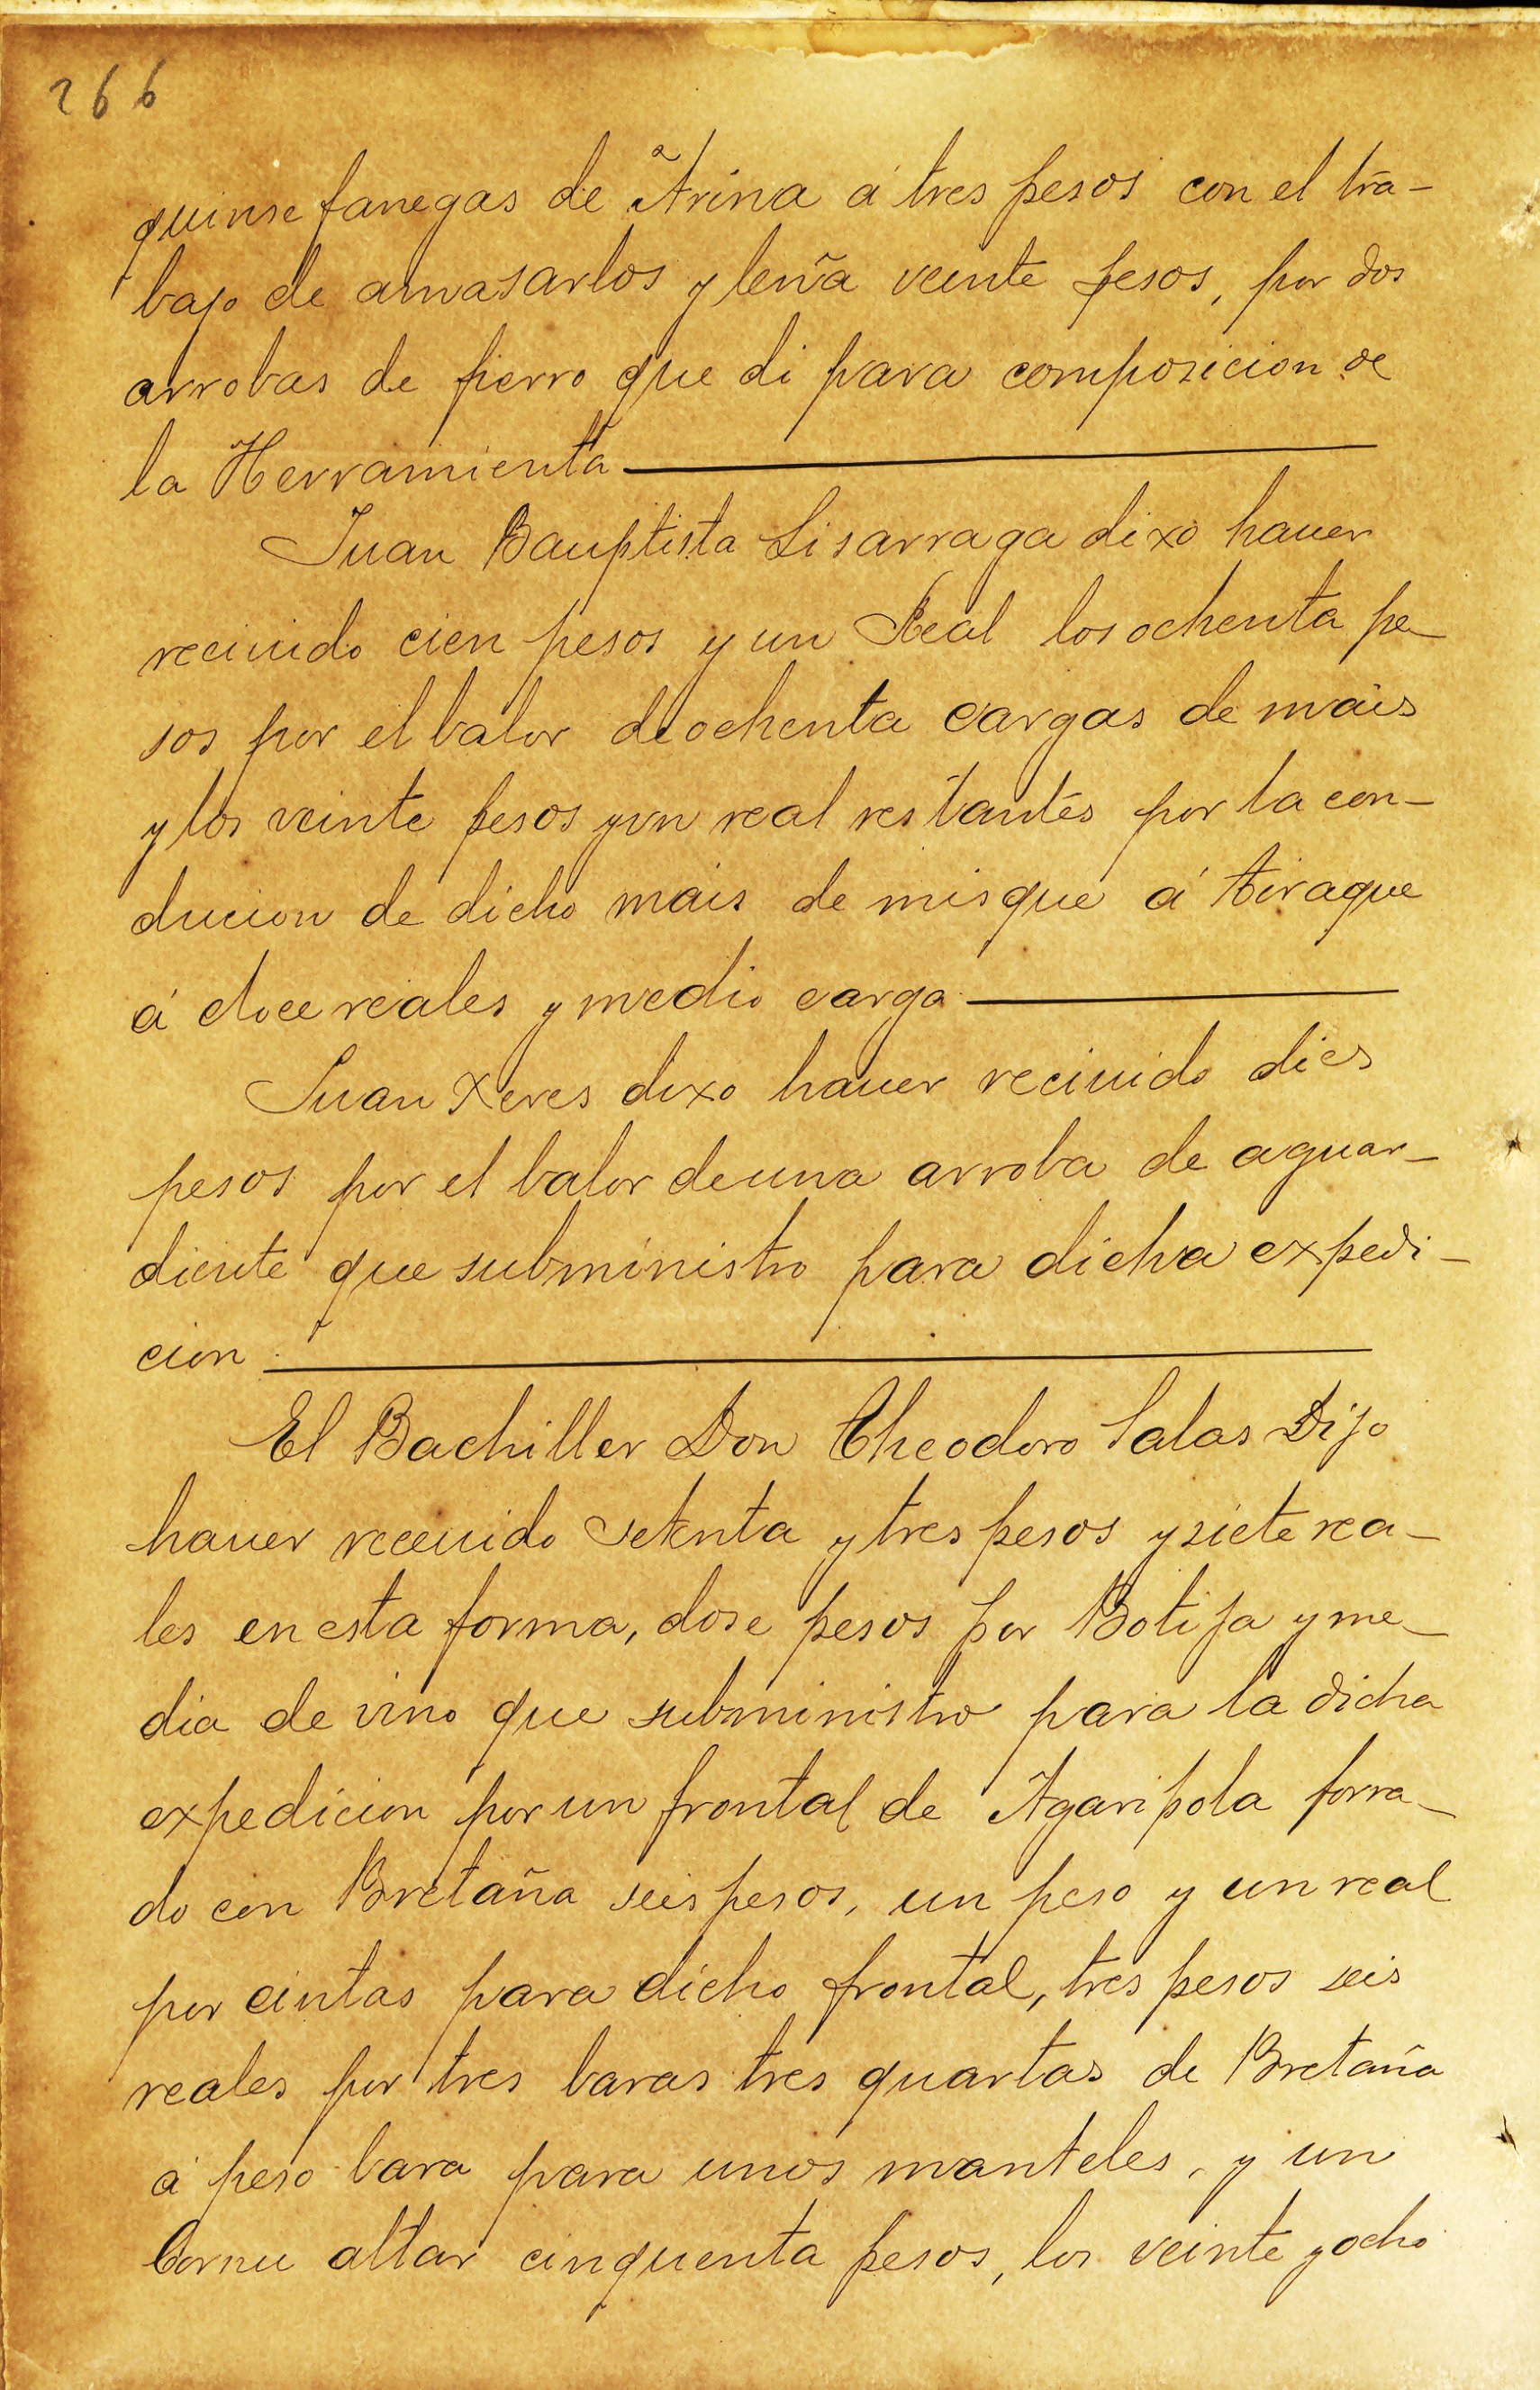 266
quinse fanegas de Arina a tres pesos con el tra-
bajo de amasarlos y leña veinte pesos, por dos
arrobas de fierro que di para composicion de
la Herramienta
Juan Bauptista Lisarraga dixo hauer
reciuido cien pesos y un Real los ochenta pe-
sos por el balor de ochenta cargas de mais
y los veinte pesos y un real restantes por la con-
ducion de dicho mais de misque á tiraque
á doce reales y medio carga
Juan Xeres dixo hauer reciuido dies
pesos por el balor de una arroba de aguar-
diente que subministro para dicha expedi-
cion
El Bachiller Don Theodoro Salas Dijo
hauer receuido setenta y tres pesos y siete rea-
les en esta forma, dose pesos por Botija y me-
dia de vino que subministro para la dicha
expedicion por un frontal de Agaripola forra-
do con Bretaña seis pesos, un peso y un real
por cintas para dicho frontal, tres pesos seis
reales por tres baras tres quartas de Bretaña
á peso bara para unos manteles, y un
Cornu altar cinquenta pesos, los veinte y ocho